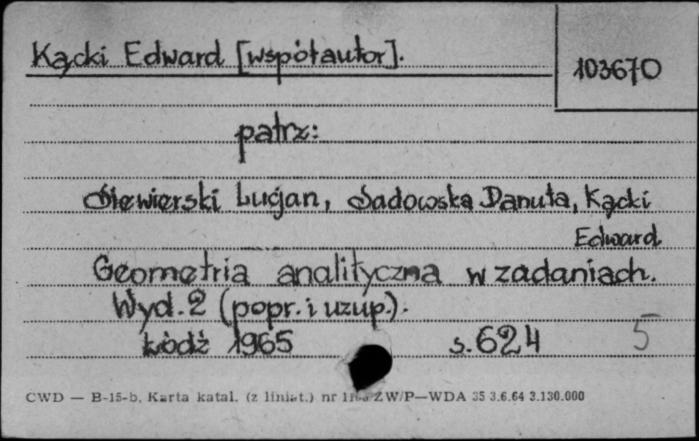 Kącki Edward [współautor].
103670
patrz:
Siewierski Lucjan, Sadowska Danuta, Kącki
Edward
Geometria analityczna w zadaniach.
Wyd. 2 (popr. i uzup.).
Łódź 1965 s. 624 5
CWD — B-15-b, Karta katal. (z liniat.) nr ZW/P—WDA 35 3.6.64 3.130.000